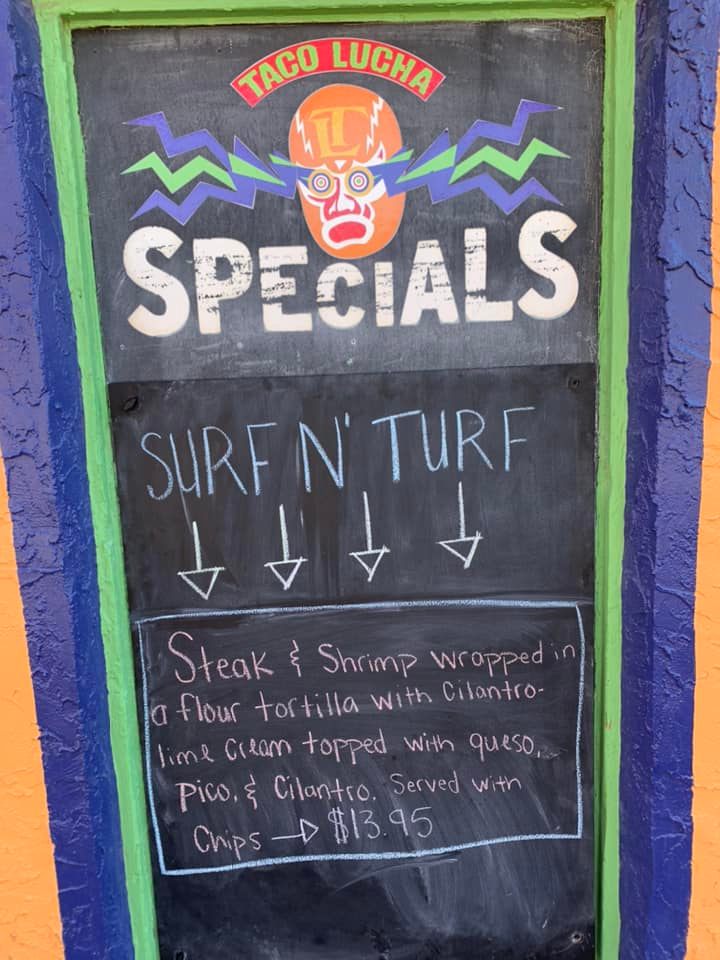 TACO LUCHA
LT
SPECIALS
SURF N' TURF
Steak & Shrimp wrapped in
a flour tortilla with Cilantro-
lime cream topped with queso,
Pico, & Cilantro. Served with
Chips → $13.95